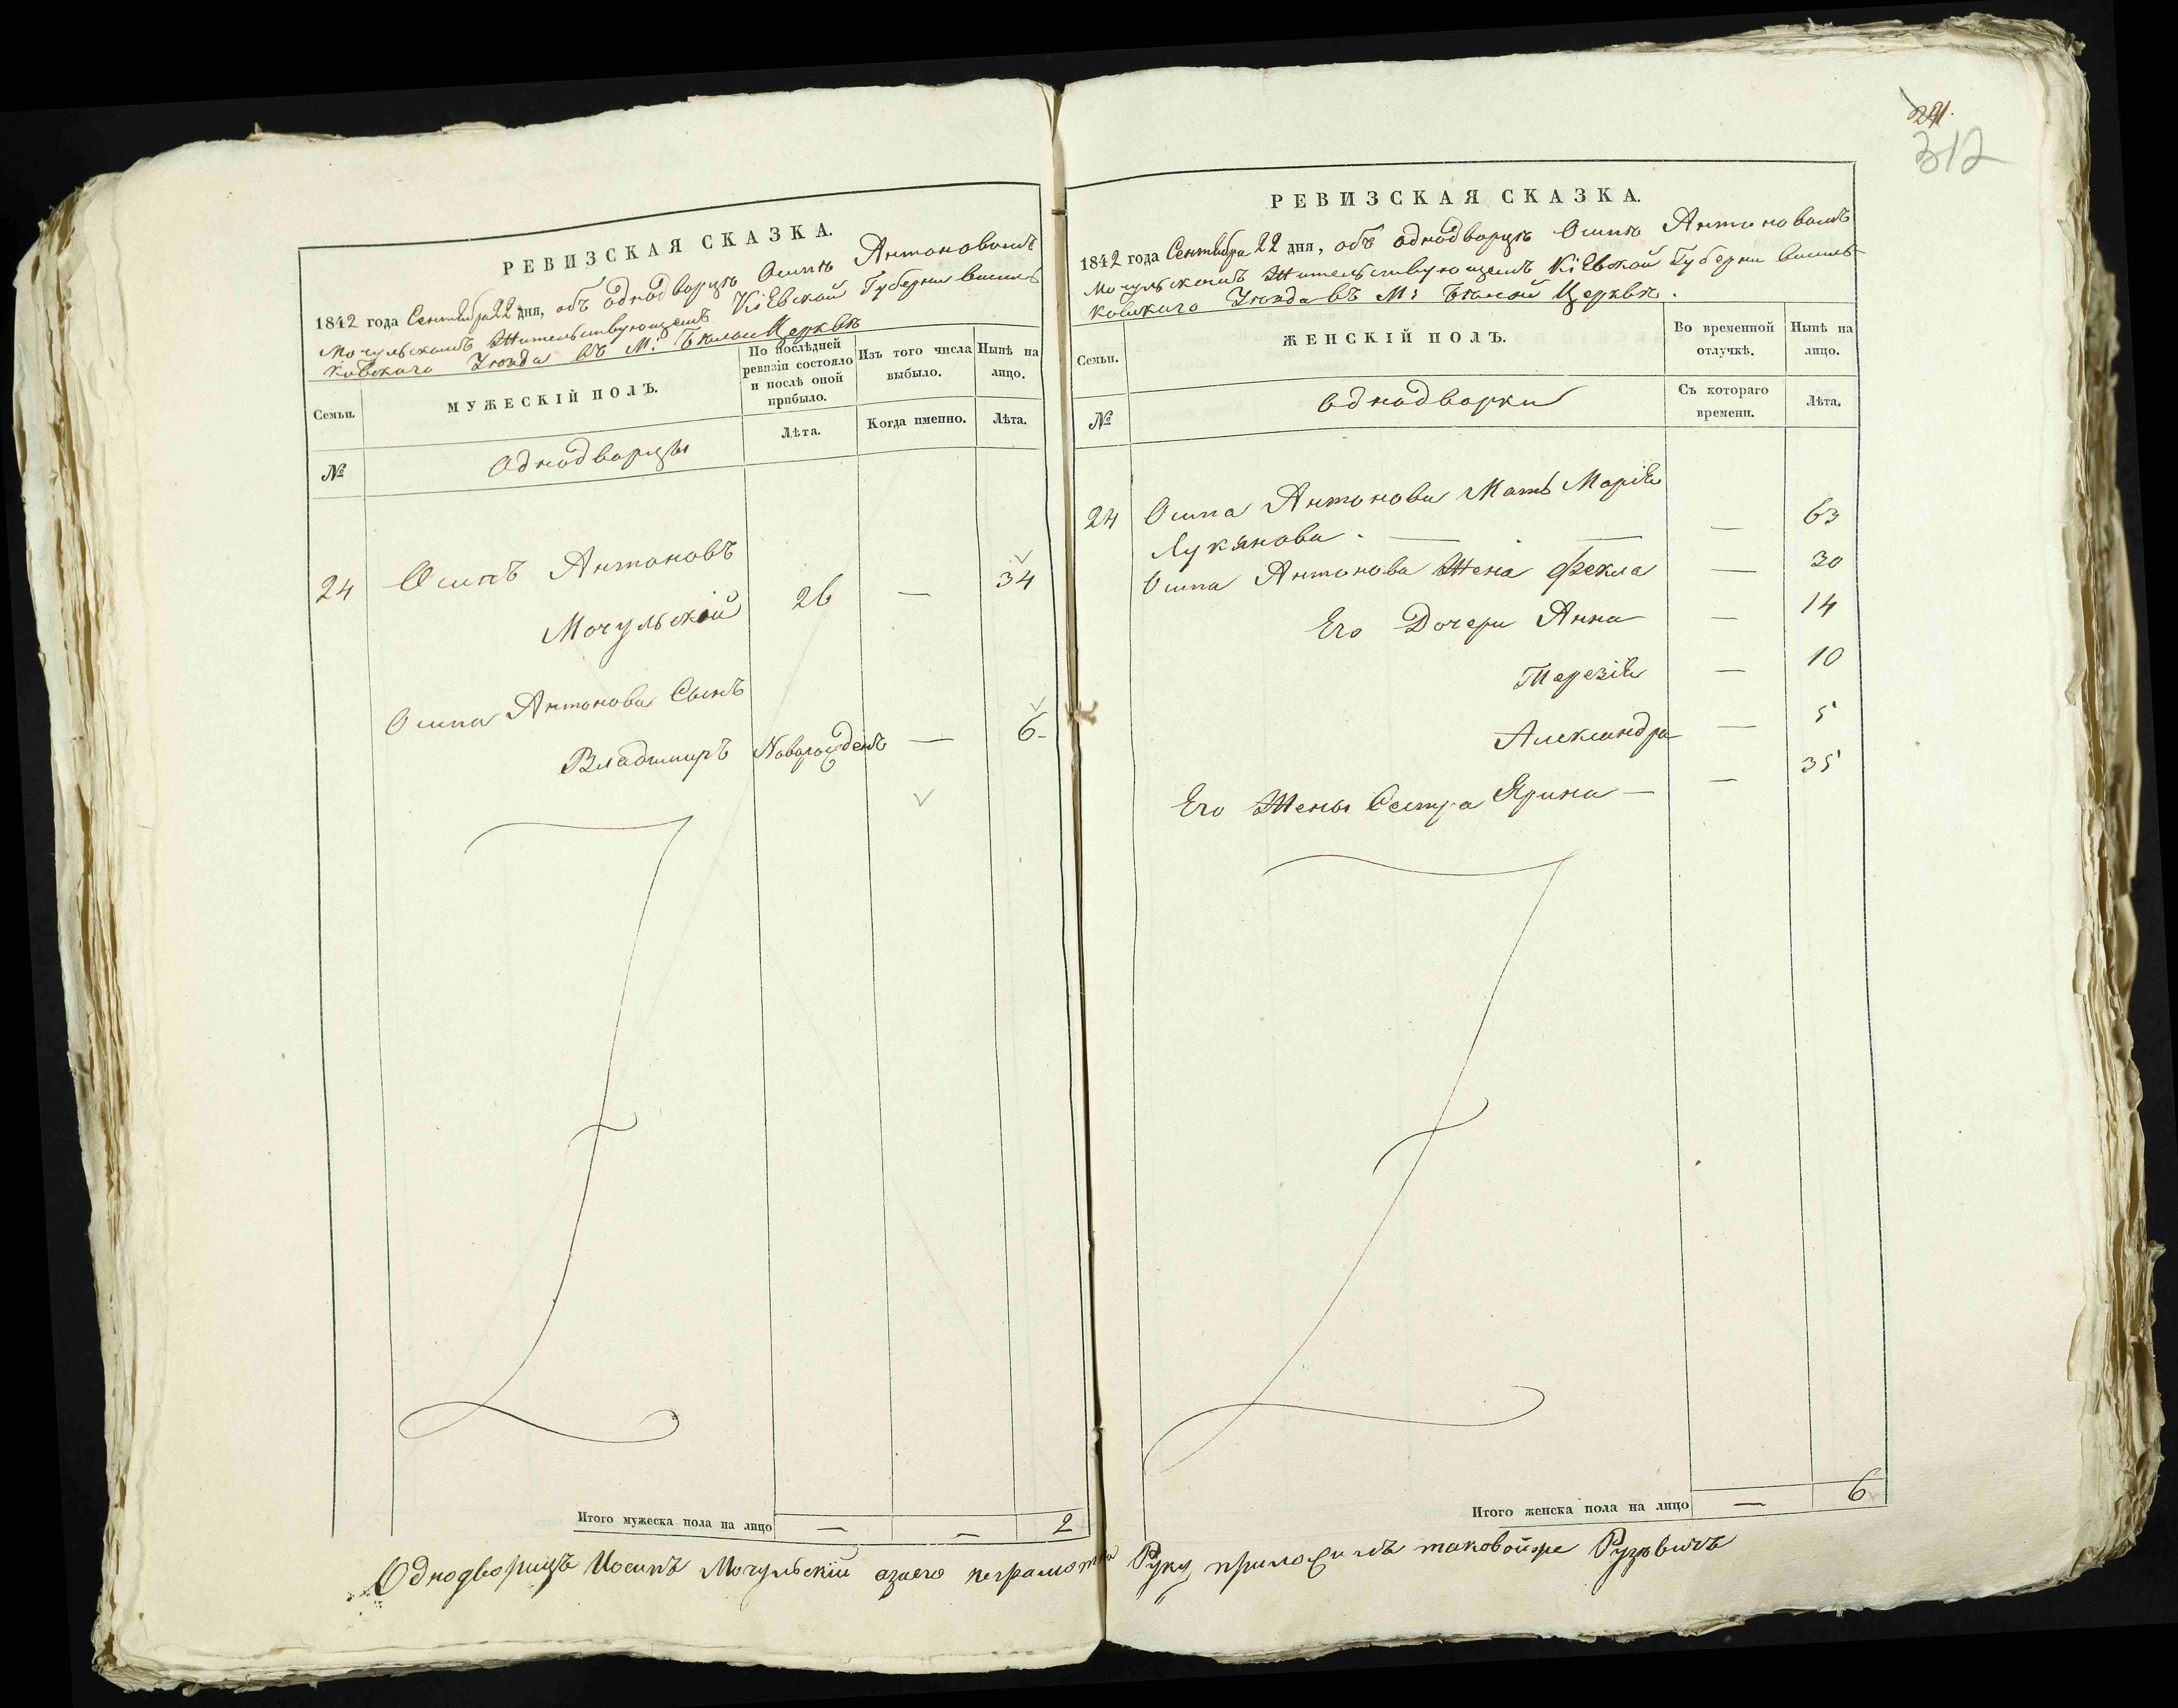 РЕВИЗСКАЯ СКАЗКА.
1842 года Сентября 22 дня, объ однодворцѣ Осипѣ Антоновомъ
Мочульскомъ Жительствующемъ Кіевской Губерніи Василь
ковскаго Уѣзда въ М: Бѣлой Церквѣ
Семьи.
МУЖЕСКІЙ ПОЛЪ.
По послѣдней
ревизіи состояло
и послѣ оной
прибыло.
Изъ того числа
выбыло.
Нынѣ на
лицо.
№
Однодворцы
Лѣта.
Когда именно.
Лѣта.
24 Осипъ Антоновъ
Мочульскій 26 — 34
Осипа Антонова Сынъ
Владимиръ Новорожденъ — 6
Итого мужеска пола на лицо — — 2
Однодворецъ Иосипъ Мочульскій азаего неграмотна
221.
312
РЕВИЗСКАЯ СКАЗКА.
1842 года Сентября 22 дня, объ однодворцѣ Осипѣ Антоновомъ
Мочульскомъ Жительствующемъ Кіевской Губерни Василь-
ковскаго Уѣзда въ М: Бѣлой Церквѣ.
Семьи.
ЖЕНСКІЙ ПОЛЪ.
Во временной
отлучкѣ.
Нынѣ на
лицо.
№
Однодворки
Съ котораго
времени.
Лѣта.
24 Осипа Антонова Мать Марія
Лукянова. — — — 63
Осипа Антонова Жена Фекла — 30
Его Дочери Анна — 14
Терезія — 10
Александра — 5
Его Жены Сестра Ярина — — 35
Итого женска пола на лицо — 6
Руку приложилъ таковойже